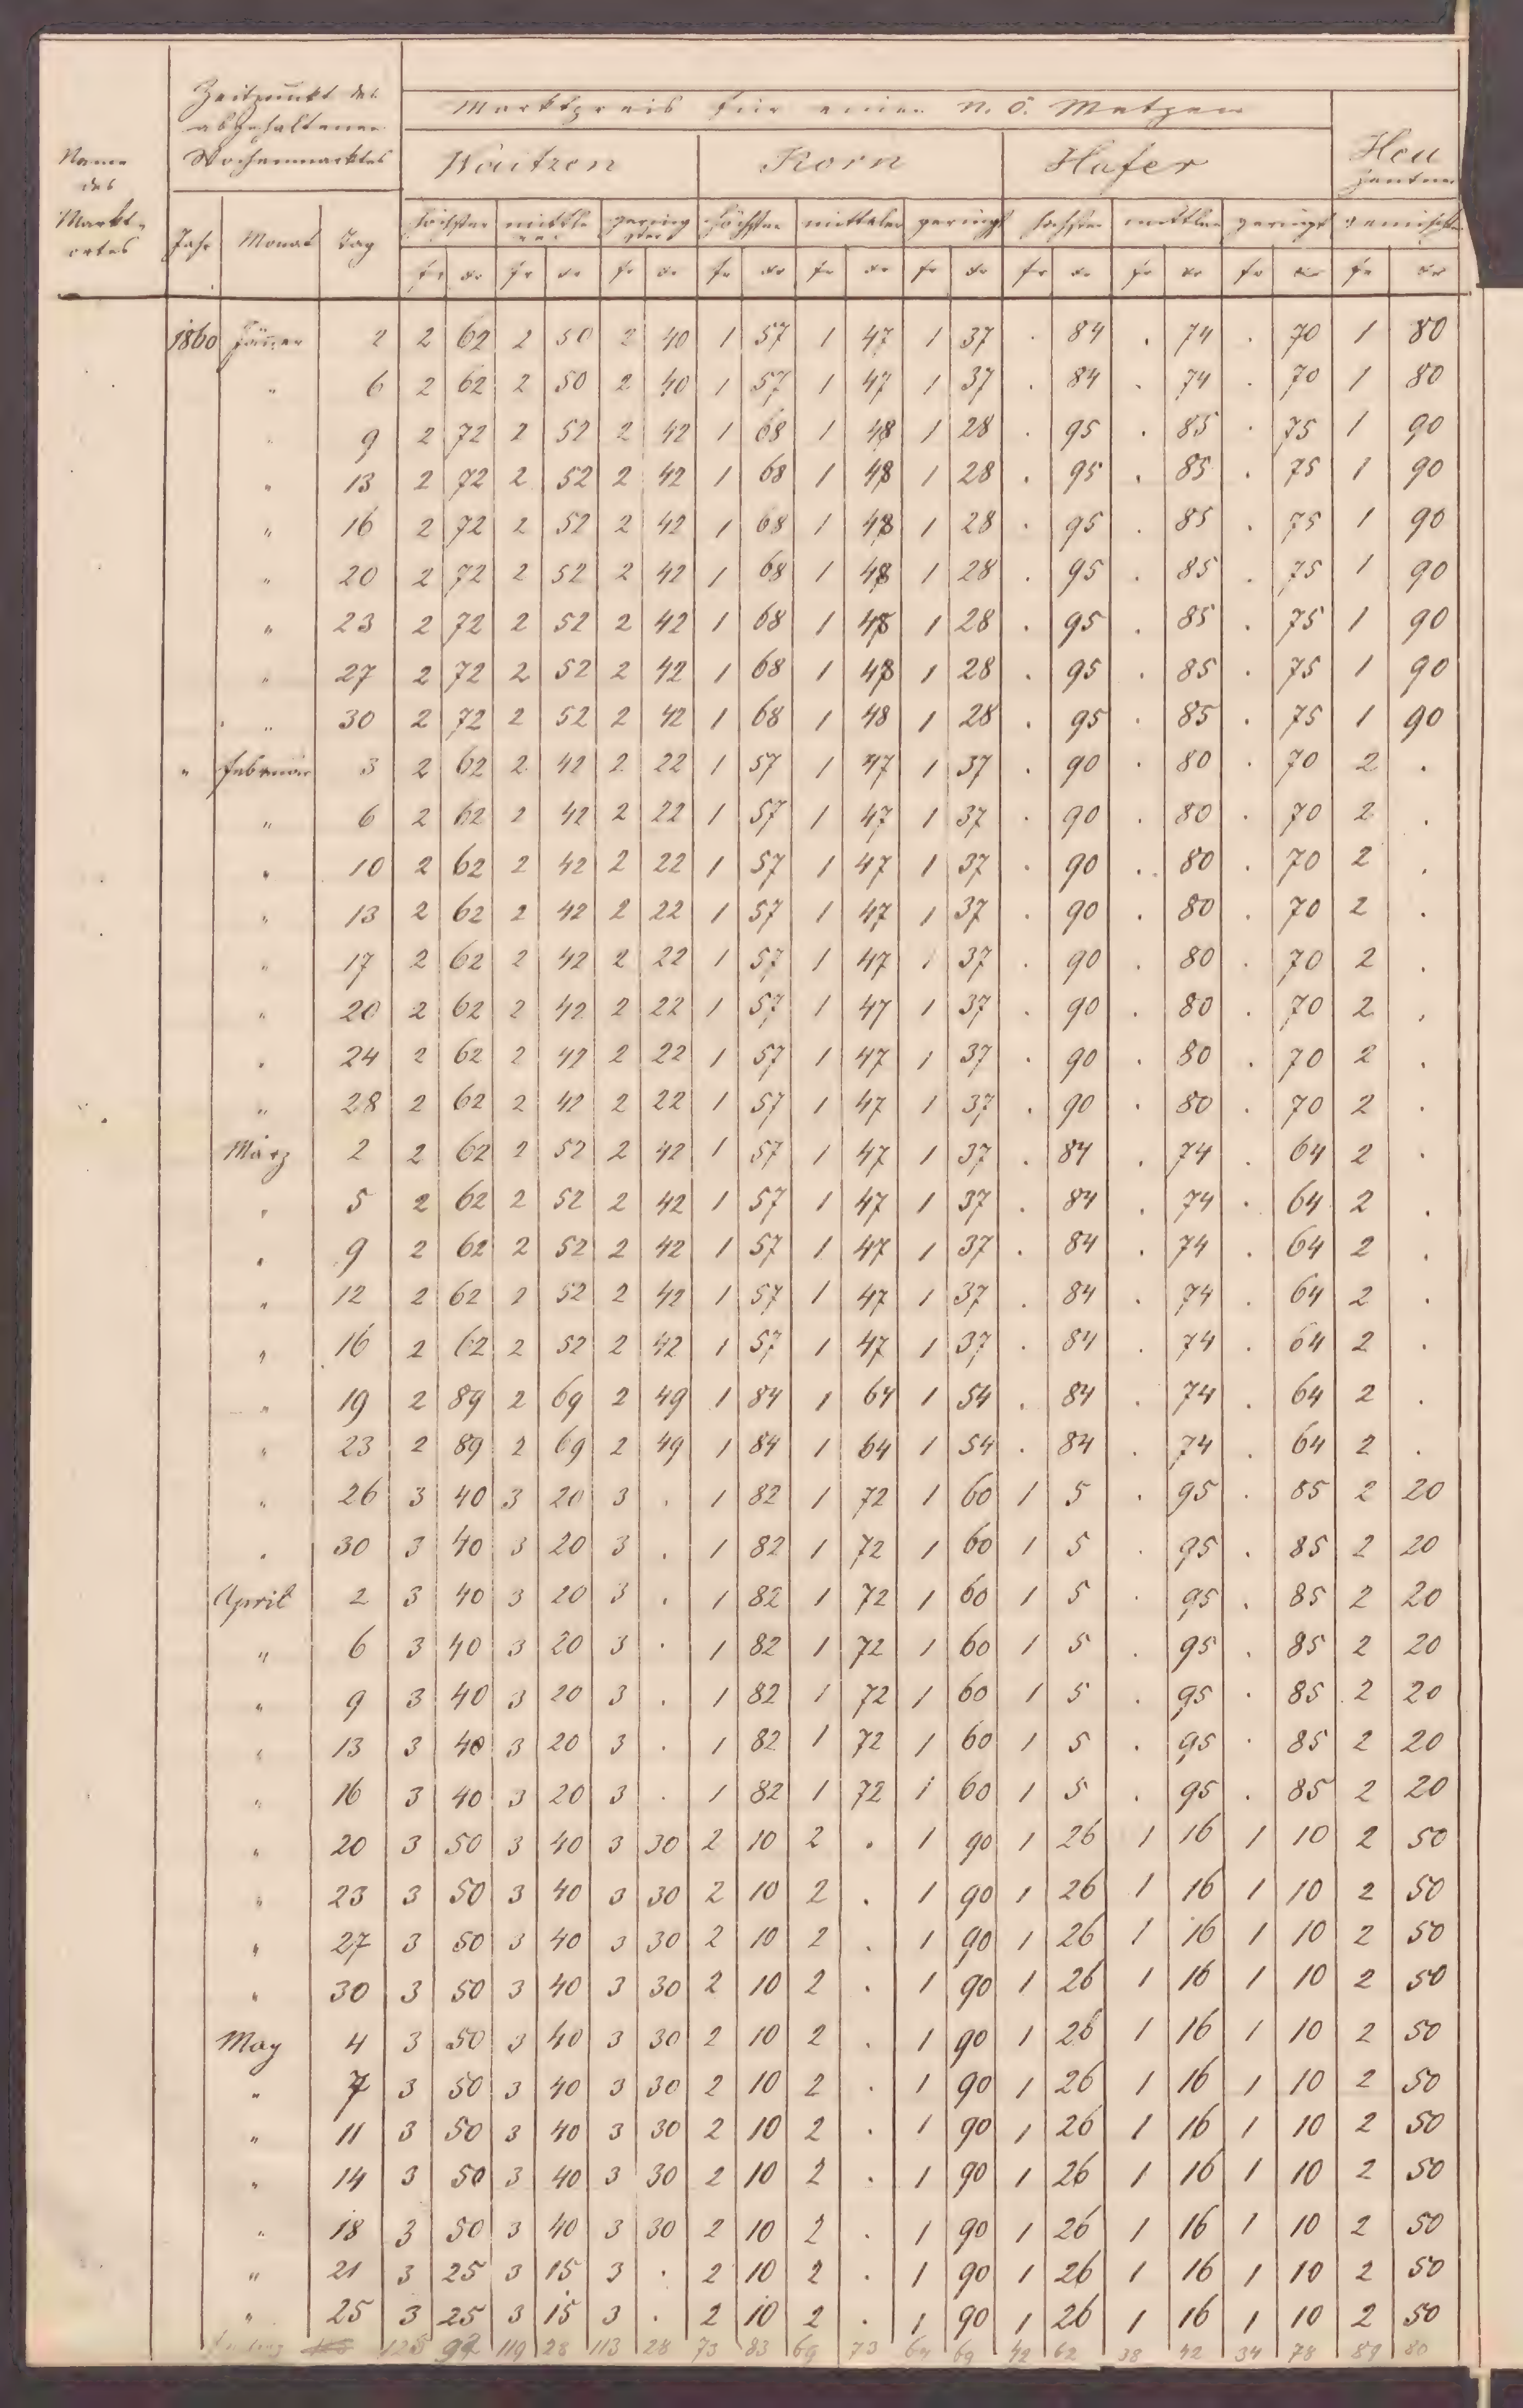 Zeitpunkt des
abgehaltenen
Wochenmarktes
Marktpreis für einen N. Ö. Metzen
Name
des
Markt-
ortes
Waitzen Korn Hafer Heu
Zentner
Jahr Monat Tag höchster mittle rer gering ster höchster mittelrer geringst höchster mittlrer geringst gemischtes
fr xr fr xr fr xr fr xr fr xr fr xr fr xr fr xr fr xr fr xr
1860 Jänner 2 2 62 2 50 2 40 1 57 1 47 1 37 . 84 . 74 . 70 1 80
" 6 2 62 2 50 2 40 1 57 1 47 1 37 . 84 . 74 . 70 1 80
" 9 2 72 2 52 2 42 1 68 1 48 1 28 . 95 . 85 . 75 1 90
" 13 2 72 2 52 2 42 1 68 1 48 1 28 . 95 . 85 . 75 1 90
" 16 2 72 2 52 2 42 1 68 1 48 1 28 . 95 . 85 . 75 1 90
" 20 2 72 2 52 2 42 1 68 1 48 1 28 . 95 . 85 . 75 1 90
" 23 2 72 2 52 2 42 1 68 1 48 1 28 . 95 . 85 . 75 1 90
" 27 2 72 2 52 2 42 1 68 1 48 1 28 . 95 . 85 . 75 1 90
" 30 2 72 2 52 2 42 1 68 1 48 1 28 . 95 . 85 . 75 1 90
" Februar 3 2 62 2 42 2 22 1 57 1 47 1 37 . 90 . 80 . 70 2 .
" 6 2 62 2 42 2 22 1 57 1 47 1 37 . 90 . 80 . 70 2 .
" 10 2 62 2 42 2 22 1 57 1 47 1 37 . 90 . 80 . 70 2 .
" 13 2 62 2 42 2 22 1 57 1 47 1 37 . 90 . 80 . 70 2 .
" 17 2 62 2 42 2 22 1 57 1 47 1 37 . 90 . 80 . 70 2 .
" 20 2 62 2 42 2 22 1 57 1 47 1 37 . 90 . 80 . 70 2 .
" 24 2 62 2 42 2 22 1 57 1 47 1 37 . 90 . 80 . 70 2 .
" 28 2 62 2 42 2 22 1 57 1 47 1 37 . 90 . 80 . 70 2 .
März 2 2 62 2 52 2 42 1 57 1 47 1 37 . 84 . 74 . 64 2 .
" 5 2 62 2 52 2 42 1 57 1 47 1 37 . 84 . 74 . 64 2 .
" 9 2 62 2 52 2 42 1 57 1 47 1 37 . 84 . 74 . 64 2 .
" 12 2 62 2 52 2 42 1 57 1 47 1 37 . 84 . 74 . 64 2 .
" 16 2 62 2 52 2 42 1 57 1 47 1 37 . 84 . 74 . 64 2 .
" 19 2 89 2 69 2 49 1 84 1 64 1 54 . 84 . 74 . 64 2 .
" 23 2 89 2 69 2 49 1 84 1 64 1 54 . 84 . 74 . 64 2 .
" 26 3 40 3 20 3 . 1 82 1 72 1 60 1 5 . 95 . 85 2 20
" 30 3 40 3 20 3 . 1 82 1 72 1 60 1 5 . 95 . 85 2 20
April 2 3 40 3 20 3 . 1 82 1 72 1 60 1 5 . 95 . 85 2 20
" 6 3 40 3 20 3 . 1 82 1 72 1 60 1 5 . 95 . 85 2 20
" 9 3 40 3 20 3 . 1 82 1 72 1 60 1 5 . 95 . 85 2 20
" 13 3 40 3 20 3 . 1 82 1 72 1 60 1 5 . 95 . 85 2 20
" 16 3 40 3 20 3 . 1 82 1 72 1 60 1 5 . 95 . 85 2 20
" 20 3 50 3 40 3 30 2 10 2 . 1 90 1 26 1 16 1 10 2 50
" 23 3 50 3 40 3 30 2 10 2 . 1 90 1 26 1 16 1 10 2 50
" 27 3 50 3 40 3 30 2 10 2 . 1 90 1 26 1 16 1 10 2 50
" 30 3 50 3 40 3 30 2 10 2 . 1 90 1 26 1 16 1 10 2 50
May 4 3 50 3 40 3 30 2 10 2 . 1 90 1 26 1 16 1 10 2 50
" 7 3 50 3 40 3 30 2 10 2 . 1 90 1 26 1 16 1 10 2 50
" 11 3 50 3 40 3 30 2 10 2 . 1 90 1 26 1 16 1 10 2 50
" 14 3 50 3 40 3 30 2 10 2 . 1 90 1 26 1 16 1 10 2 50
" 18 3 50 3 40 3 30 2 10 2 . 1 90 1 26 1 16 1 10 2 50
" 21 3 25 3 15 3 . 2 10 2 . 1 90 1 26 1 16 1 10 2 50
" 25 3 25 3 15 3 . 2 10 2 . 1 90 1 26 1 16 1 10 2 50
92 119 28 113 28 73 83 69 73 64 69 42 62 38 42 34 78 89 80